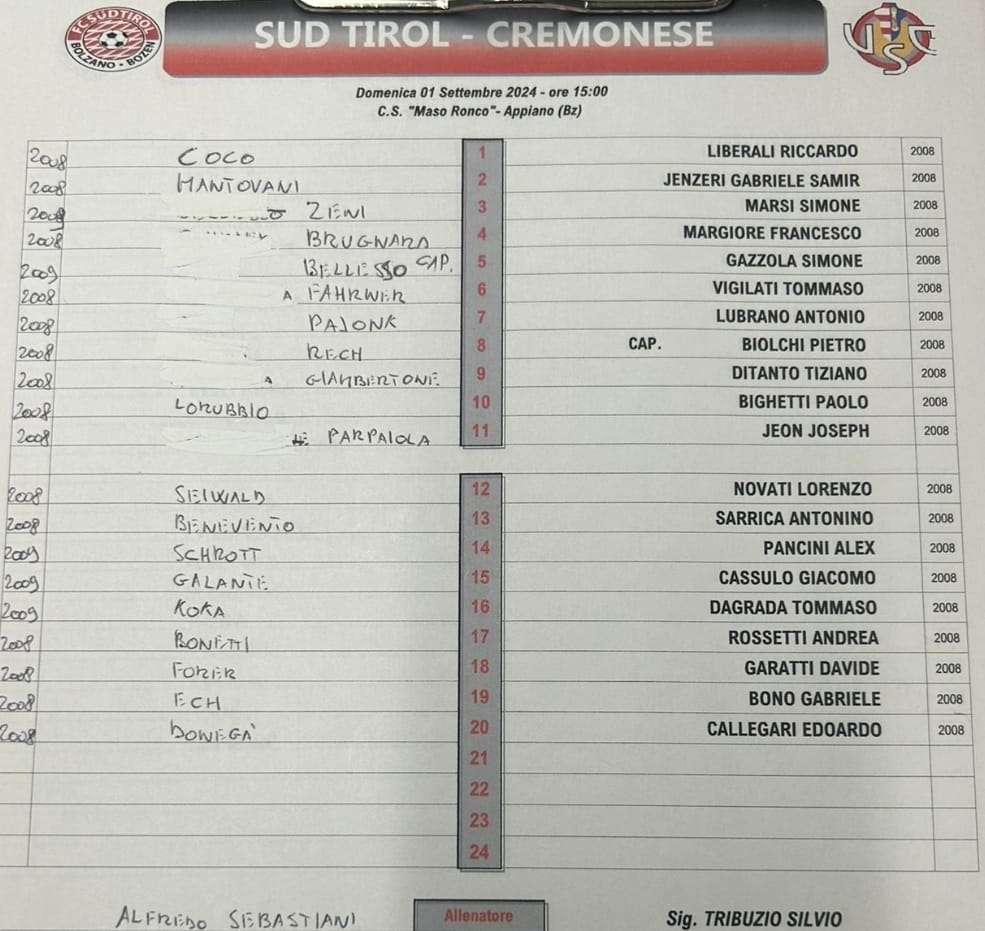 FC SÜDTIROL
BOLZANO - BOZEN
SUD TIROL - CREMONESE
Domenica 01 Settembre 2024 - ore 15:00
C.S. "Maso Ronco"- Appiano (Bz)
2008 COCO 1 LIBERALI RICCARDO 2008
2008 MANTOVANI 2 JENZERI GABRIELE SAMIR 2008
2008 ZENI 3 MARSI SIMONE 2008
2008 BRUGNARA 4 MARGIORE FRANCESCO 2008
2009 BELLESSO CAP. 5 GAZZOLA SIMONE 2008
2008 FAHRWER 6 VIGILATI TOMMASO 2008
2008 PAJONK 7 LUBRANO ANTONIO 2008
2008 RECH 8 CAP. BIOLCHI PIETRO 2008
2008 GIAMBERTONE 9 DITANTO TIZIANO 2008
2008 LORUBBIO 10 BIGHETTI PAOLO 2008
2008 PARPAIOLA 11 JEON JOSEPH 2008
2008 SEIWALD 12 NOVATI LORENZO 2008
2008 BENEVENTO 13 SARRICA ANTONINO 2008
2009 SCHROTT 14 PANCINI ALEX 2008
2009 GALANTE 15 CASSULO GIACOMO 2008
2009 KOKA 16 DAGRADA TOMMASO 2008
2008 BONETTI 17 ROSSETTI ANDREA 2008
2008 FORER 18 GARATTI DAVIDE 2008
2008 ECH 19 BONO GABRIELE 2008
2008 DONEGÀ 20 CALLEGARI EDOARDO 2008
21
22
23
24
ALFREDO SEBASTIANI Allenatore Sig. TRIBUZIO SILVIO